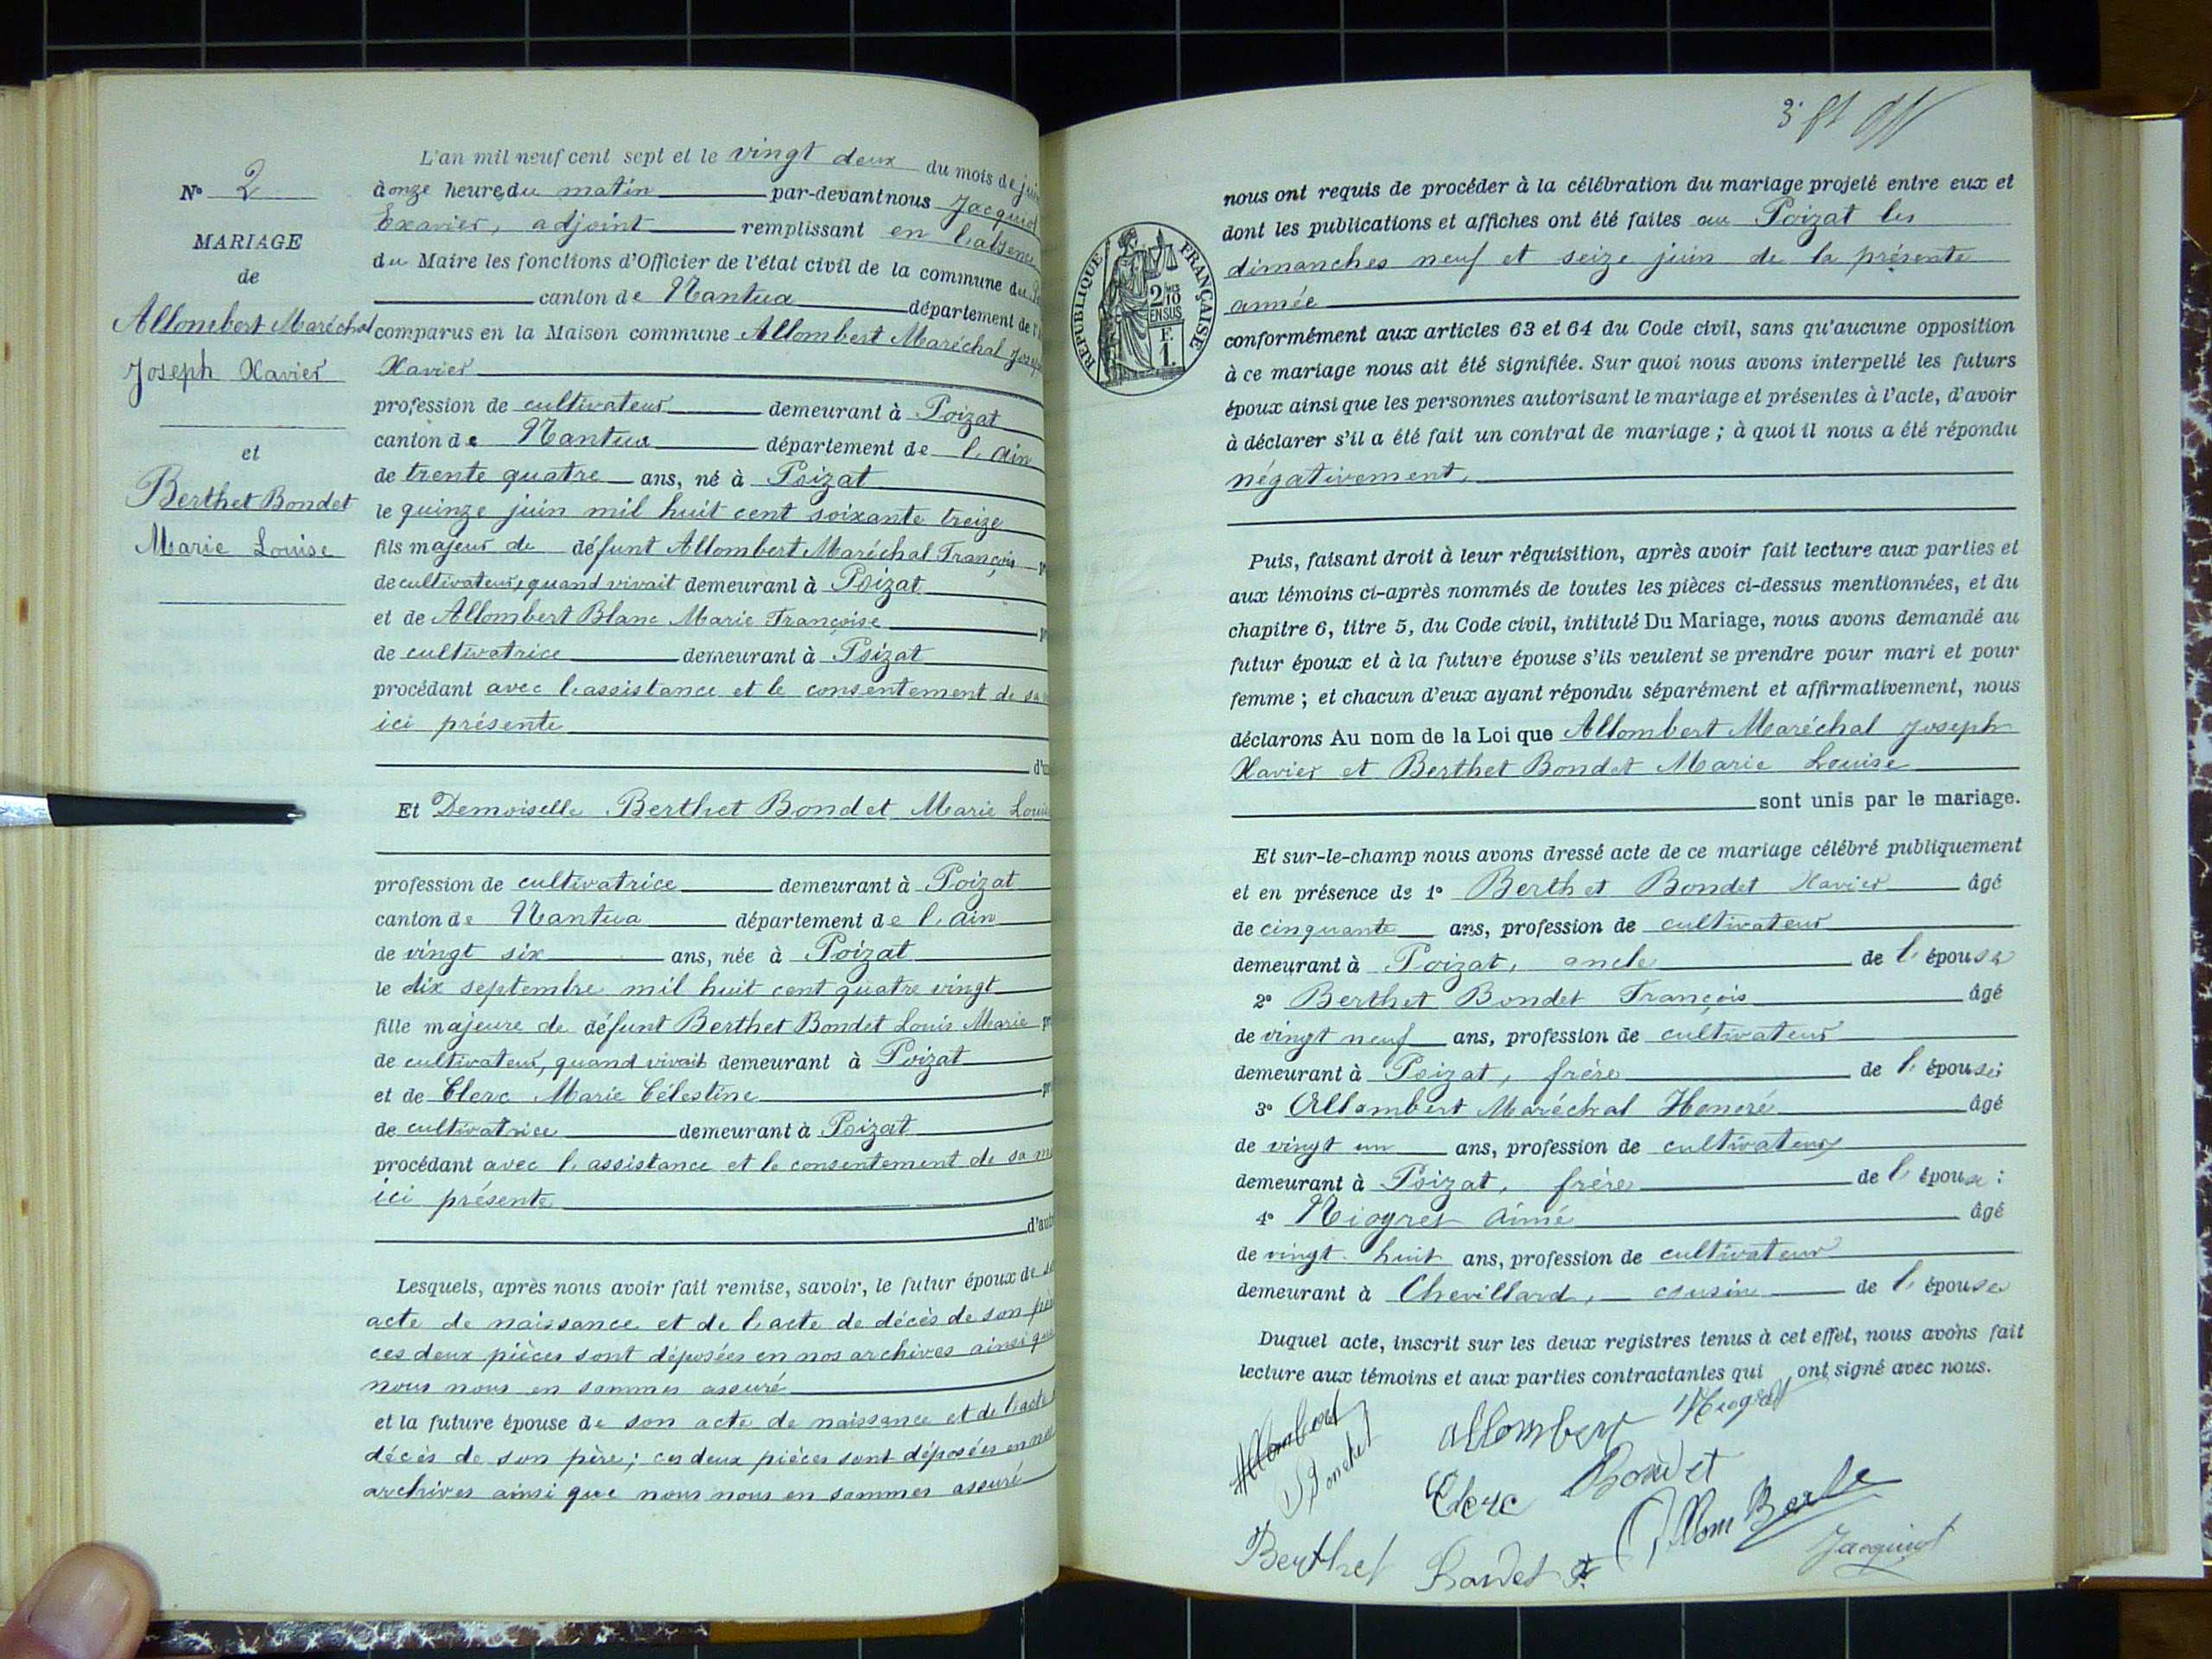 N° 2
MARIAGE
de
Allombert Maréchal
Joseph Xavier
et
Berthet Bondet
Marie Louise
L'an mil neuf cent sept et le vingt deux du mois de
à onze heures du matin par-devant nous Jacquinot
Exavier, adjoint remplissant en l'absence
du Maire les fonctions d'Officier de l'état civil de la commune du
canton de Nantua département de
comparus en la Maison commune Allombert Maréchal Joseph
Xavier
profession de cultivateur demeurant à Poizat
canton de Nantua département de l'Ain
de trente quatre ans, né à Poizat
le quinze juin mil huit cent soixante treize
fils majeur de défunt Allombert Maréchal François
de cultivateur, quand vivait demeurant à Poizat
et de Allombert Blanc Marie Françoise
de cultivatrice demeurant à Poizat
procédant avec l'assistance et le consentement de sa
ici présente
Et Demoiselle Berthet Bondet Marie Louise
profession de cultivatrice demeurant à Poizat
canton de Nantua département de l'Ain
de vingt six ans, née à Poizat
le dix septembre mil huit cent quatre vingt
fille majeure de défunt Berthet Bondet Louis Marie
de cultivateur, quand vivait demeurant à Poizat
et de Clerc Marie Célestine
de cultivatrice demeurant à Poizat
procédant avec l'assistance et le consentement de sa
ici présente
Lesquels, après nous avoir fait remise, savoir, le futur époux de
acte de naissance et de l'acte de décès de son père
ces deux pièces sont déposées en nos archives ainsi que
nous nous en sommes assuré
et la future épouse de son acte de naissance et de l'acte
décès de son père; ces deux pièces sont déposées en nos
archives ainsi que nous nous en sommes assuré
RÉPUBLIQUE FRANÇAISE
2/10
EN SUS
F
1.
nous ont requis de procéder à la célébration du mariage projeté entre eux et
dont les publications et affiches ont été faites au Poizat les
dimanches neuf et seize juin de la présente
année
conformément aux articles 63 et 64 du Code civil, sans qu'aucune opposition
à ce mariage nous ait été signifiée. Sur quoi nous avons interpellé les futurs
époux ainsi que les personnes autorisant le mariage et présentes à l'acte, d'avoir
à déclarer s'il a été fait un contrat de mariage ; à quoi il nous a été répondu
négativement.
Puis, faisant droit à leur réquisition, après avoir fait lecture aux parties et
aux témoins ci-après nommés de toutes les pièces ci-dessus mentionnées, et du
chapitre 6, titre 5, du Code civil, intitulé Du Mariage, nous avons demandé au
futur époux et à la future épouse s'ils veulent se prendre pour mari et pour
femme ; et chacun d'eux ayant répondu séparément et affirmativement, nous
déclarons Au nom de la Loi que Allombert Maréchal Joseph
Xavier et Berthet Bondet Marie Louise
sont unis par le mariage.
Et sur-le-champ nous avons dressé acte de ce mariage célébré publiquement
et en présence de 1° Berthet Bondet Xavier âgé
de cinquante ans, profession de cultivateur
demeurant à Poizat, oncle de l'épouse
2° Berthet Bondet François âgé
de vingt neuf ans, profession de cultivateur
demeurant à Poizat, frère de l'épouse;
3° Allombert Maréchal Honoré âgé
de vingt un ans, profession de cultivateur
demeurant à Poizat, frère de l'époux :
4° Niogret Aimé âgé
de vingt huit ans, profession de cultivateur
demeurant à Chevillard, cousin de l'épouse
Duquel acte, inscrit sur les deux registres tenus à cet effet, nous avons fait
lecture aux témoins et aux parties contractantes qui ont signé avec nous.
Allombert allombert Niogret
Clerc Bondet
Berthet Bondet F. AllomBerte Jacquinot